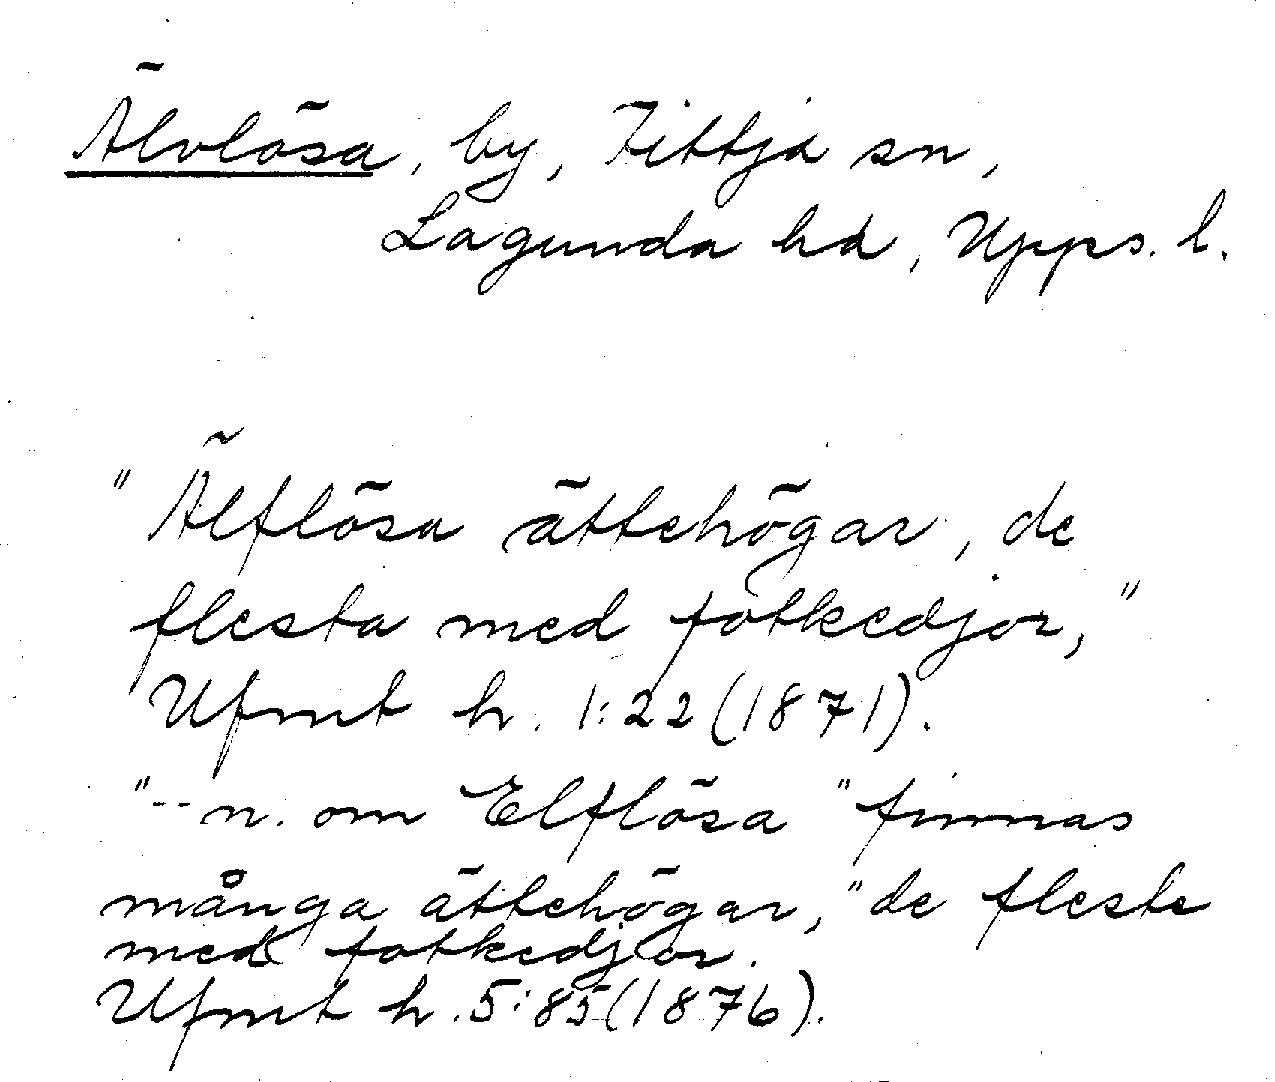 Älvlösa, by, Fittja sn,
Lagunda hd, Upps. l.
"Älflösa ättehögar, de
flesta med fotkedjor,"
Ufmt h. 1:22 (1871).
"-- n. om Elflösa "finnas
många ättehögar, "de fleste
med fotkedjor.
Ufmt h. 5:85 (1876).